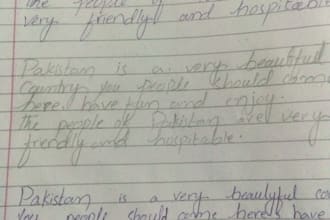 the people of
very friendly and hospitable
Pakistan is a very beautiful
country you people should come
here have fun and enjoy.
the people of Pakistan are very
friendly and hospitable.
Pakistan is a very beautyful co
You people should come here have